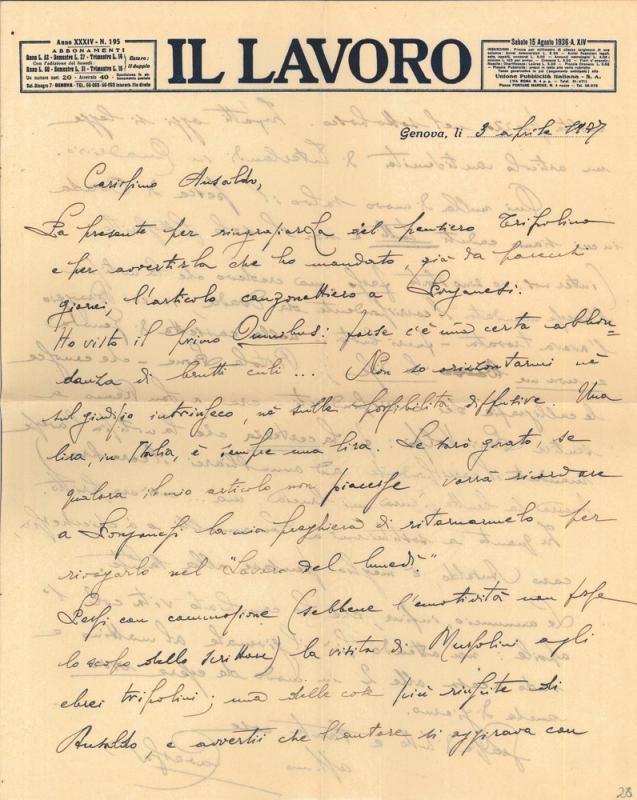 Anno XXXIV - N. 195
ABBONAMENTI
IL LAVORO
Sabato 15 Agosto 1936 - A. XIV
Unione Pubblicità Italiana - S. A.
Genova, li 3 aprile 1937
Carissimo Ansaldo,
La presente per ringraziarLa del pensiero Tripolino
e per avvertirla che ho mandato, già da parecchi
giorni, l'articolo canzonettiero a Longanesi.
Ho visto il primo Omnibus: forse c'è una certa abbon=
danza di brutti culi... Non so né
sul giudizio intrinseco, né sulle possibilità diffusive. Una
lira, in Italia, è sempre una lira. Le sarò grato se
qualora il mio articolo non piacesse vorrà ricordare
a Longanesi la mia preghiera di ritornarmelo per
rivogarlo nel "Lavoro del lunedì".
Lessi con commozione (sebbene l'emotività non fosse
lo scopo dello scrittore) la visita di Mussolini agli
ebrei tripolini; una delle cose più riuscite di
Ansaldo e avvertii che l'autore si aggirava con
28